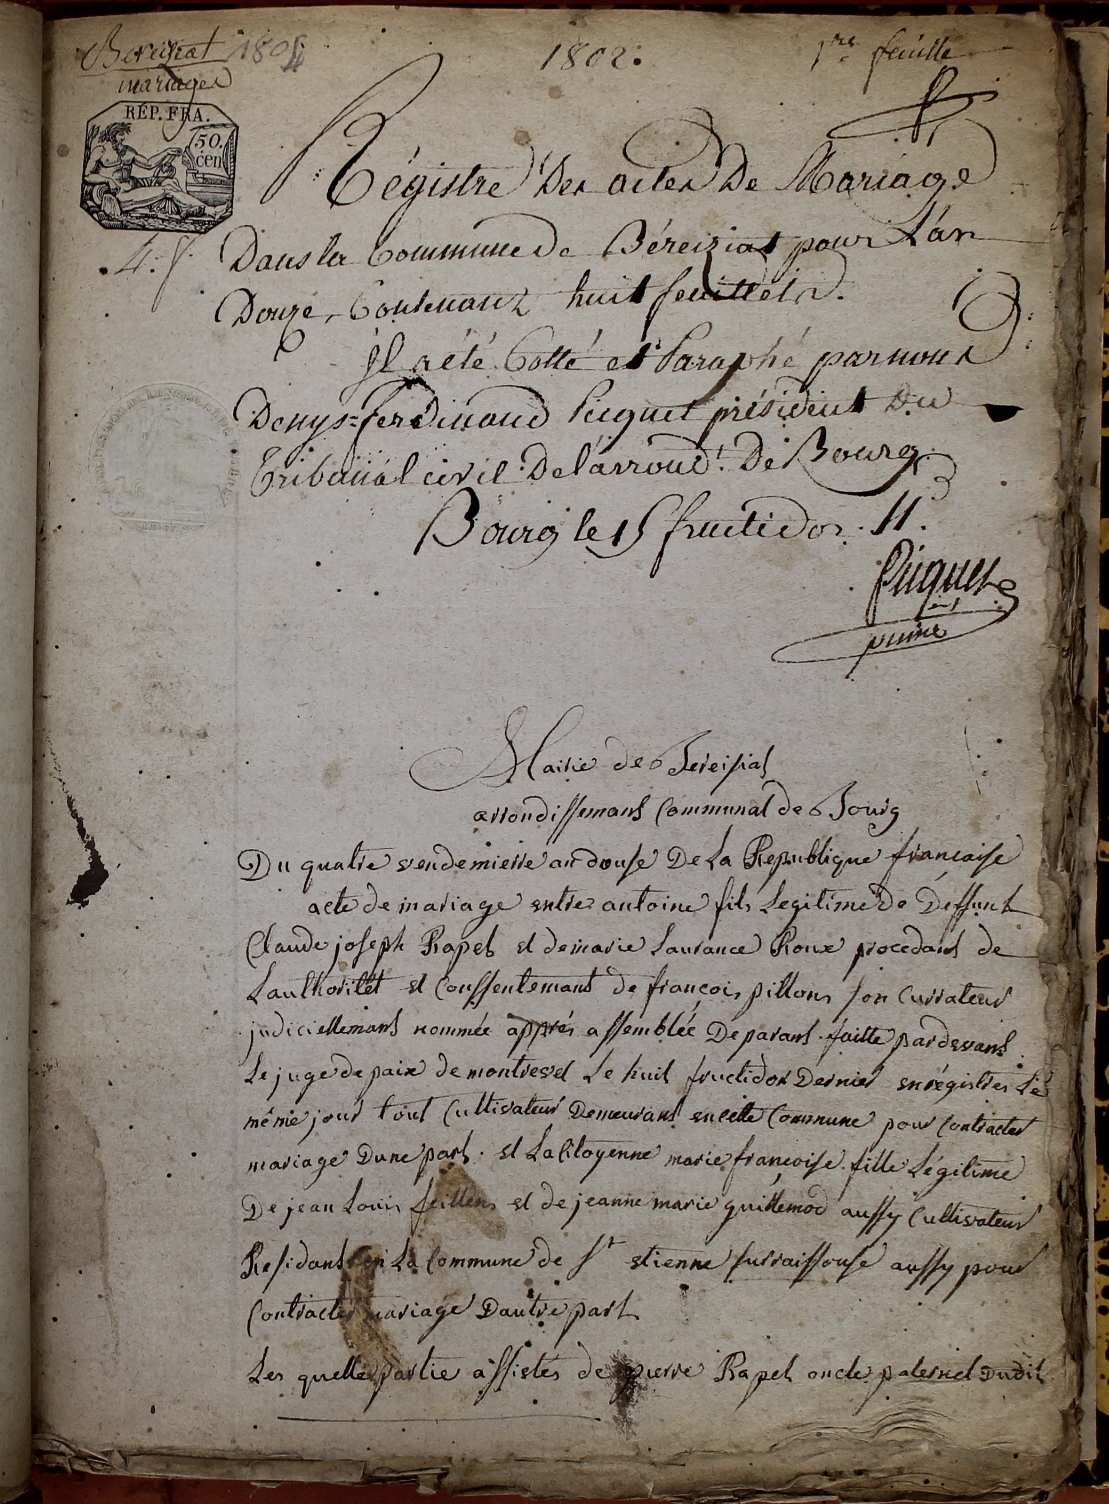 Béréiziat 1804
mariages
1802.
1re feuille
RÉP. FRA.
50.
cen
4. f.
Régistre Des actes De Mariage
Dans la Commune de Béreiziat pour L'an
Douze, Contenant huit feuillets.
Il a été Cotté et Paraphé par nous
Denys=ferdinand Picquet président Du
Tribunal civil De l'arrond.t De Bourg
Bourg le 15 fructidor. 11.
Picquet
Mairie de Bereisiat
arrondissemant Communal de Bourg
Du quatre vendemierre an douse De La Republique francaise
acte de mariage entre antoine fils Legitime de Deffunt
Claude joseph Rapet et de marie Laurance Roux procedant de
Lauthoritét et Conssentemant de francois pillons son Currateur
judiciellemant nommée apprés assemblée De parans faitte pardevant
Le juge de paix de montrevel Le huit fructidor Dernier enrégistrés Lé
même jour tout Cultivateur Demeurant en cette Commune pour Contracter
mariage Dune part. et La Citoyenne marie francoise fille Légitime
De jean Louis feillens et de jeanne marie guillemod aussy Cultivateur
Residant en La Commune de St etienne surraissouse aussy pour
Contracter mariage Dautre part
Les quelle partie assistés de pierre Rapet oncle paternel Dudit